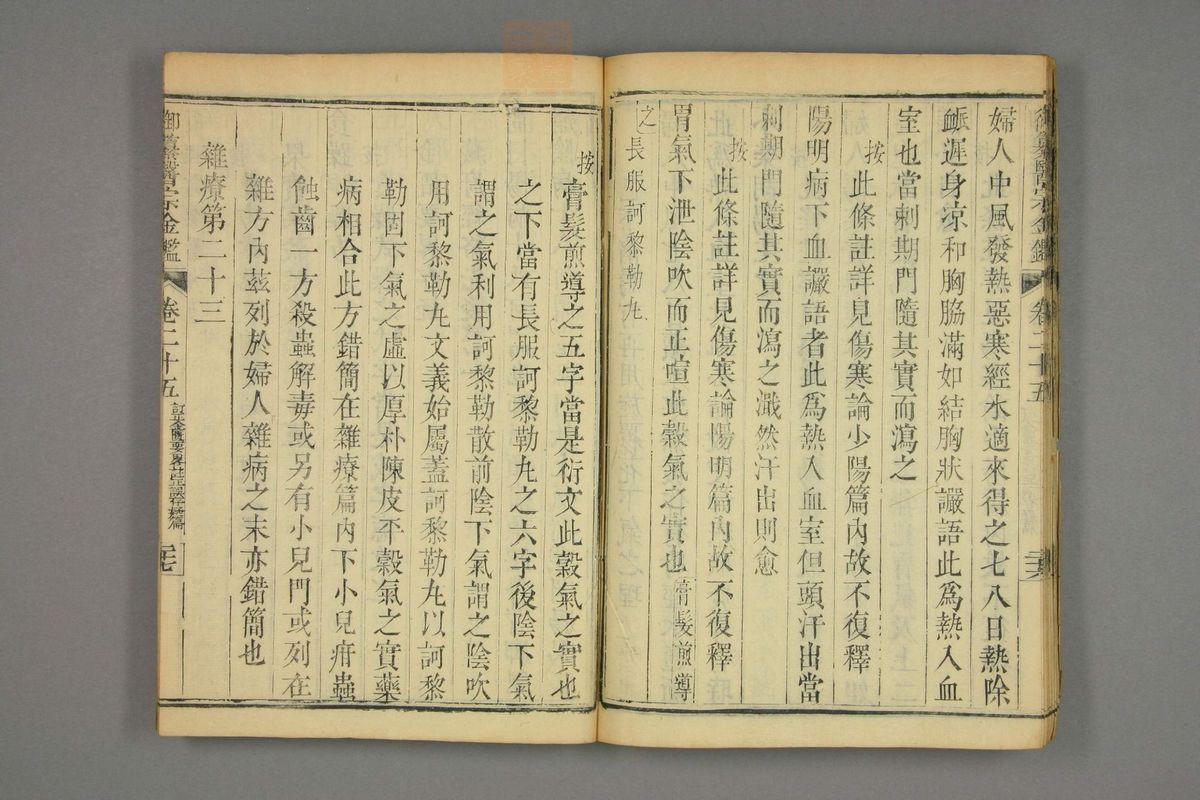 御纂醫宗金鑑 卷二十五
婦人中風發熱惡寒經水適來得之七八日熱除
䘑遲身凉和胸脇滿如結胸狀讝語此爲熱入血
室也當刺期門隨其實而瀉之
按此條註詳見傷寒論少陽篇內故不復釋
陽明病下血讝語者此爲熱入血室但頭汗出當
刺期門隨其實而瀉之濈然汗出則愈
按此條註詳見傷寒論陽明篇內故不復釋
胃氣下泄陰吹而正喧此穀氣之實也膏髮煎導
之長服訶黎勒丸
按膏髮煎導之五字當是衍文此穀氣之實也
之下當有長服訶黎勒丸之六字後陰下氣
謂之氣利用訶黎勒散前陰下氣謂之陰吹
用訶黎勒丸文義始屬蓋訶黎勒丸以訶黎
勒固下氣之虛以厚朴陳皮平穀氣之實藥
病相合此方錯簡在雜療篇內下小兒疳蟲
蝕齒一方殺蟲解毒或另有小兒門或列在
雜方內茲列於婦人雜病之末亦錯簡也
雜療第二十三
御纂醫宗金鑑 卷二十五 訂正金匱要畧註正誤存疑篇 二十七